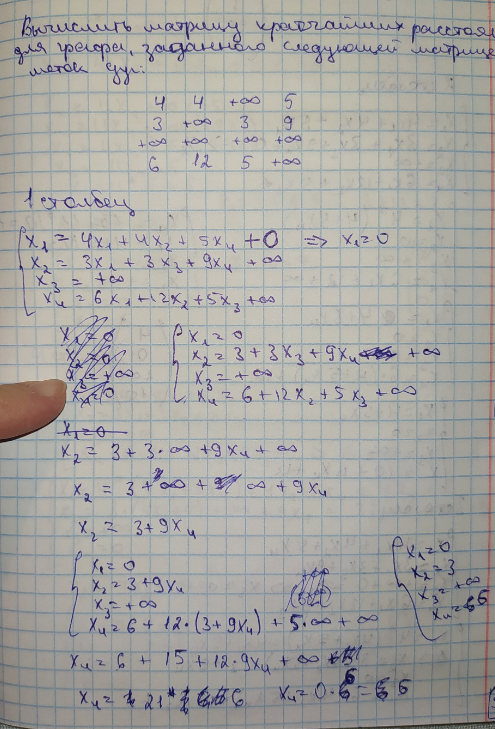 Вычислить матрицу кратчайших расстоя
для графа, заданного следующей матрице
меток дуг:
4 4 +∞ 5
3 +∞ 3 9
+∞ +∞ +∞ +∞
6 12 5 +∞
1 столбец
x₁ = 4x₁ + 4x₂ + 5x₄ + 0 => x₁ = 0
x₂ = 3x₁ + 3x₃ + 9x₄ + ∞
x₃ = +∞
x₄ = 6x₁ + 12x₂ + 5x₃ + ∞
x₁ = 0
x₂ = 0
x₃ = +∞
x₄ = 0
x₁ = 0
x₂ = 3 + 3x₃ + 9x₄ + ∞
x₃ = +∞
x₄ = 6 + 12x₂ + 5x₃ + ∞
x₁ = 0
x₂ = 3 + 3·∞ + 9x₄ + ∞
x₂ = 3 + ∞ + ∞ + 9x₄
x₂ = 3 + 9x₄
x₁ = 0
x₂ = 3 + 9x₄
x₃ = +∞
x₄ = 6 + 12·(3 + 9x₄) + 5·∞ + ∞
x₁ = 0
x₂ = 3
x₃ = +∞
x₄ = 6
x₄ = 6 + 15 + 12·9x₄ + ∞
x₄ = 21* 6 x₄ = 0·6 = 6